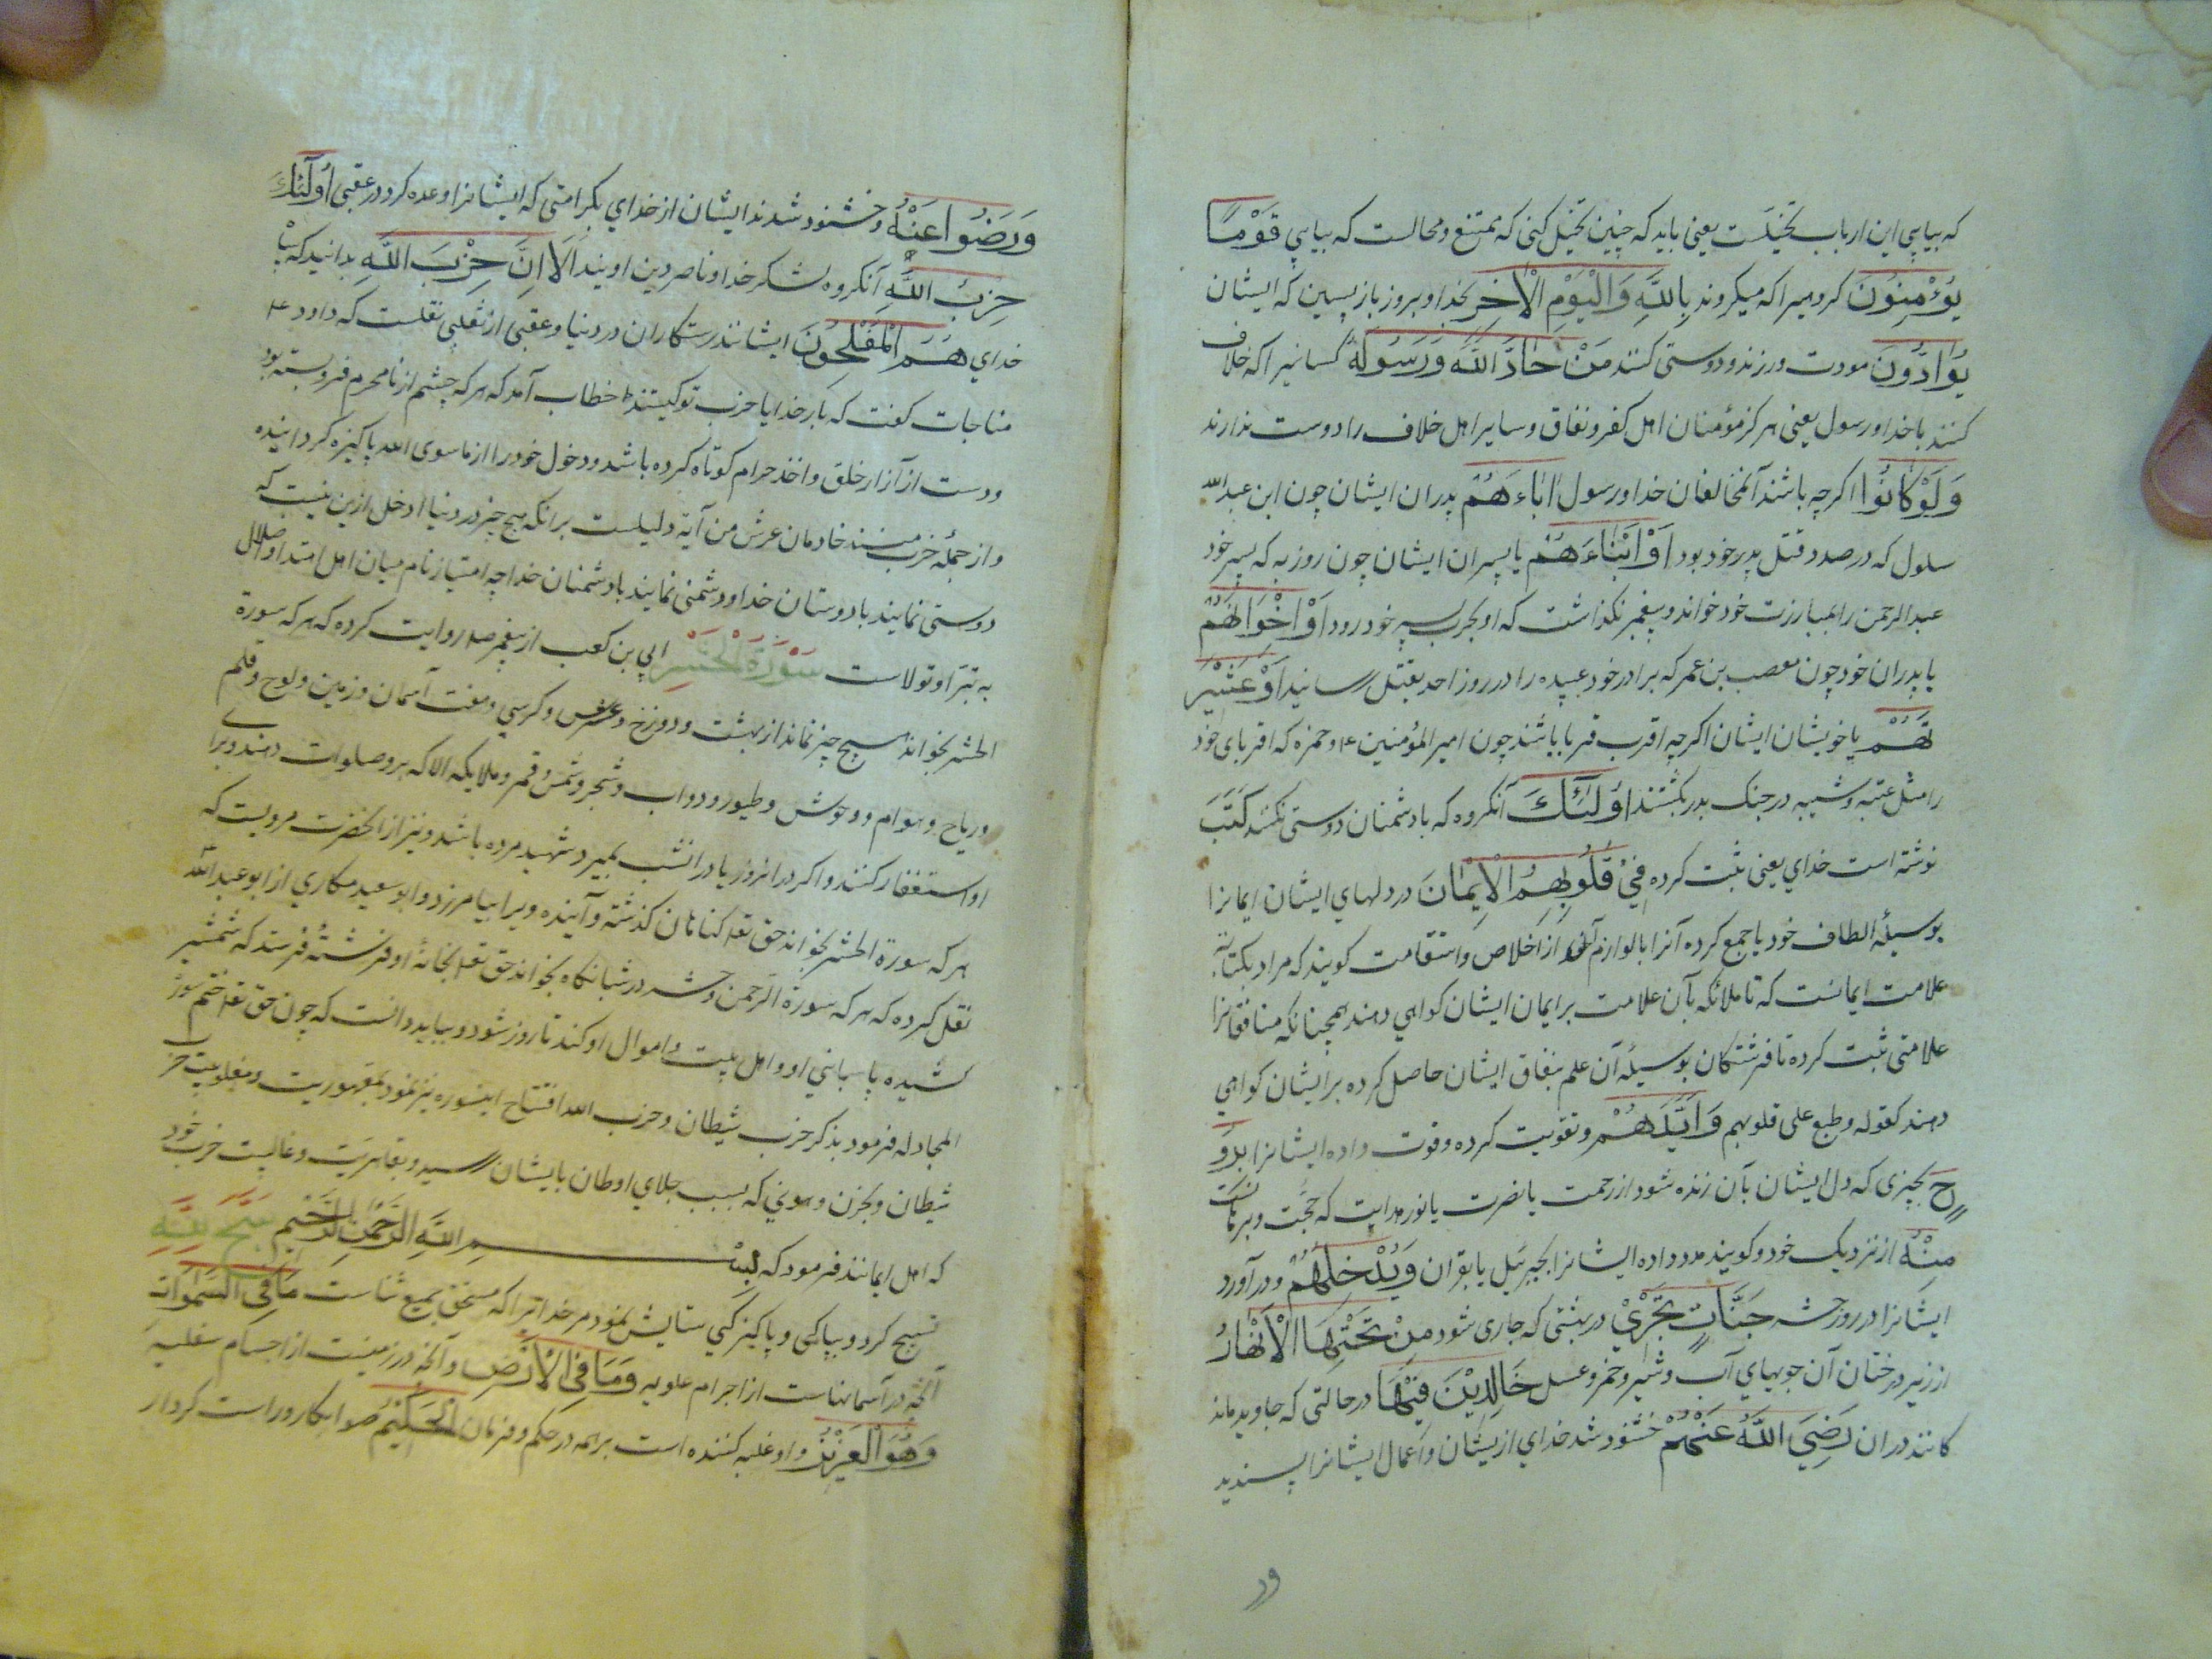 که بیابی این ارباب تخیلست یعنی باید که چنین تخیل کنی که ممتنع و محالست که بیابی قَوْمًا
یُؤْمِنُونَ کروهیرا که میکروند بِاللّٰهِ وَالْیَوْمِ الْاٰخِرِ بخدا و بروز بازپسین که ایشان
یُوَادُّونَ مودت ورزند و دوستی کنند مَنْ حَادَّ اللّٰهَ وَرَسُولَهُ کسانیرا که خلاف
کنند با خدا و رسول یعنی هرکز مؤمنان اهل کفر و نفاق و سایر اهل خلاف را دوست ندارند
وَلَوْ کَانُوا اکرچه باشند آنمخالفان خدا و رسول اٰبَاءَهُمْ پدران ایشان چون ابن عبدالله
سلول که در صدد قتل پدر خود بود اَوْ اَبْنَاءَهُمْ یا پسران ایشان چون روز به که پسر خود
عبدالرحمن را بمبارزت خود خواند و پیغمبر نکذاشت که او بحرب پسر خود رود اَوْ اِخْوَانَهُمْ
یا پدران خود چون مصعب بن عمر که برادر خود عبیده را در روز احد بقتل رسانید اَوْ عَشِیْرَ
تَهُمْ یا خویشان ایشان اکرچه اقرب قربا باشند چون امیر المؤمنین ۴ و حمزه که اقربای خود
را مثل عتبه و شیبه در جنک بدر بکشتند اُولٰئِکَ آنکروه که با دشمنان دوستی نکنند کَتَبَ
نوشته است خدای یعنی ثبت کرده فِیْ قُلُوبِهِمُ الْاِیْمَانَ در دلهای ایشان ایمانرا
بوسیلهٔ الطاف خود یا جمع کرده آنرا با لوازم آن از اخلاص و استقامت کویند که مراد بکتابة
علامت ایمانست که تا ملائکه بآن علامت بر ایمان ایشان کواهی دهند همچنانکه منافقانرا
علامتی ثبت کرده تا فرشتکان بوسیلهٔ آن علم بنفاق ایشان حاصل کرده بر ایشان کواهی
دهند کقوله و طبع علی قلوبهم وَاَیَّدَهُمْ و تقویت کرده و قوت داده ایشانرا بِرُوْ
حٍ بچیزی که دل ایشان بآن زنده شود از رحمت یا نصرت یا نور هدایت که حجت و برهانست
مِنْهُ از نزدیک خود و کویند مدد داده ایشانرا بجبرئیل یا بقران وَیُدْخِلُهُمْ و در آورد
ایشانرا در روز حشر جَنَّاتٍ تَجْرِیْ در بهشتی که جاری شود مِنْ تَحْتِهَا الْاَنْهَارُ
از زیر درختان آن جویهای آب و شیر و خمر و عسل خَالِدِیْنَ فِیْهَا در حالتی که جاوید ماند
کانند در ان رَضِیَ اللّٰهُ عَنْهُمْ خشنود شد خدای از یشان و اعمال ایشانرا پسندید
ور
وَرَضُوا عَنْهُ و خشنود شدند ایشان از خدای بکرامتی که ایشانرا وعده کرد در عقبی اُولٰئِکَ
حِزْبُ اللّٰهِ آنکروه لشکر خدا و ناصر دین اویند اَلَا اِنَّ حِزْبَ اللّٰهِ بدانید که
خدای هُمُ الْمُفْلِحُونَ ایشانند رستکاران در دنیا و عقبی از ثعلبی نقلست که داود ۴
مناجات کفت که بار خدایا حزب تو کیستند خطاب آمد که هرکه چشم از نامحرم فرو بسته بود
و دست از آزار خلق و اخذ حرام کوتاه کرده باشد و دخول خود را از ما سوی الله پاکیزه کردانیده
و از جمله حزب منند خادمان عرش من آیة دلیلست برانکه هیچ چیز در دنیا ادخل ازین نیست که
دوستی نمایند با دوستان خدا و دشمنی نمایند با دشمنان خدا چه امتیاز تام میان اهل اهتدا و اضلال
به تبرا و تولاست سُوْرَةُ الْحَشْرِ ابی بن کعب از پیغمبر ص روایت کرده که هرکه سورة
الحشر بخواند هیچ چیز نماند از بهشت و دوزخ و عرش و کرسی و هفت آسمان و زمین و لوح و قلم
و ریاح و هوام و وحوش و طیور و دواب و شجر و شمس و قمر و ملایکه الا که برو صلوات دهند و برای
او استغفار کنند و اکر در انروز یا در انشب بمیرد شهید مرده باشد و نیز از انحضرت مرویست که
هرکه سورة الحشر بخواند حق تعه کناهان کذشته و آینده ویرا بیامرزد و ابو سعید مکاری از ابو عبدالله
نقل کرده که هرکه سورة الرحمن و حشر در شبانکاه بخواند حق تعه بخانهٔ او فرشتهٔ فرستد که شمشیر
کشیده پاسبانی او و اهل بیت و اموال او کند تا روز شود و بباید دانست که چون حق تعه ختم سورة
المجادله فرمود بذکر حزب شیطان و حزب الله افتتاح اینسوره نیز نمود بمقهوریت و مغلوبیت حزب
شیطان و بحزن و هونی که بسبب جلای اوطان بایشان رسید و بقاهریت و غالبیت حزب خود
که اهل ایمانند فرمود که بِسْمِ اللّٰهِ الرَّحْمٰنِ الرَّحِیْمِ سَبَّحَ لِلّٰهِ
تسبیح کرد و بپاکی و پاکیزکی ستایش نمود مر خدائیرا که مستحق جمیع ثناست مَا فِی السَّمٰوَاتِ
آنچه در آسمانهاست از اجرام علویه وَمَا فِی الْاَرْضِ و آنچه در زمینست از اجسام سفلیه
وَهُوَ الْعَزِیْزُ و او غلبه کننده است بر همه در حکم و فرمان الْحَکِیْمُ صوابکار و راست کردار